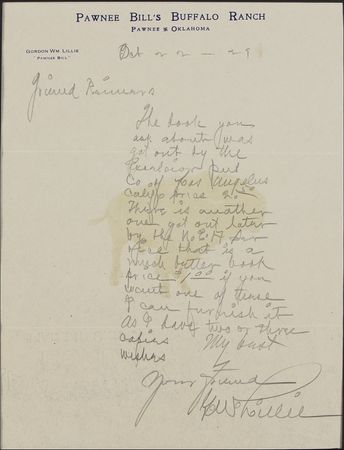 PAWNEE BILL'S BUFFALO RANCH
PAWNEE OKLAHOMA
GORDON WM. LILLIE
"PAWNEE BILL"
Oct 22 - 29
Friend
The book you
ask about was
got out by the
Pub
Co of Los Angelus
Calif price
There is another
one got out later
by the
that is a
much better book
price $1.00 if you
want one of these
I can furnish it
as I have two or three
copies My best
wishes
Your friend
GW Lillie